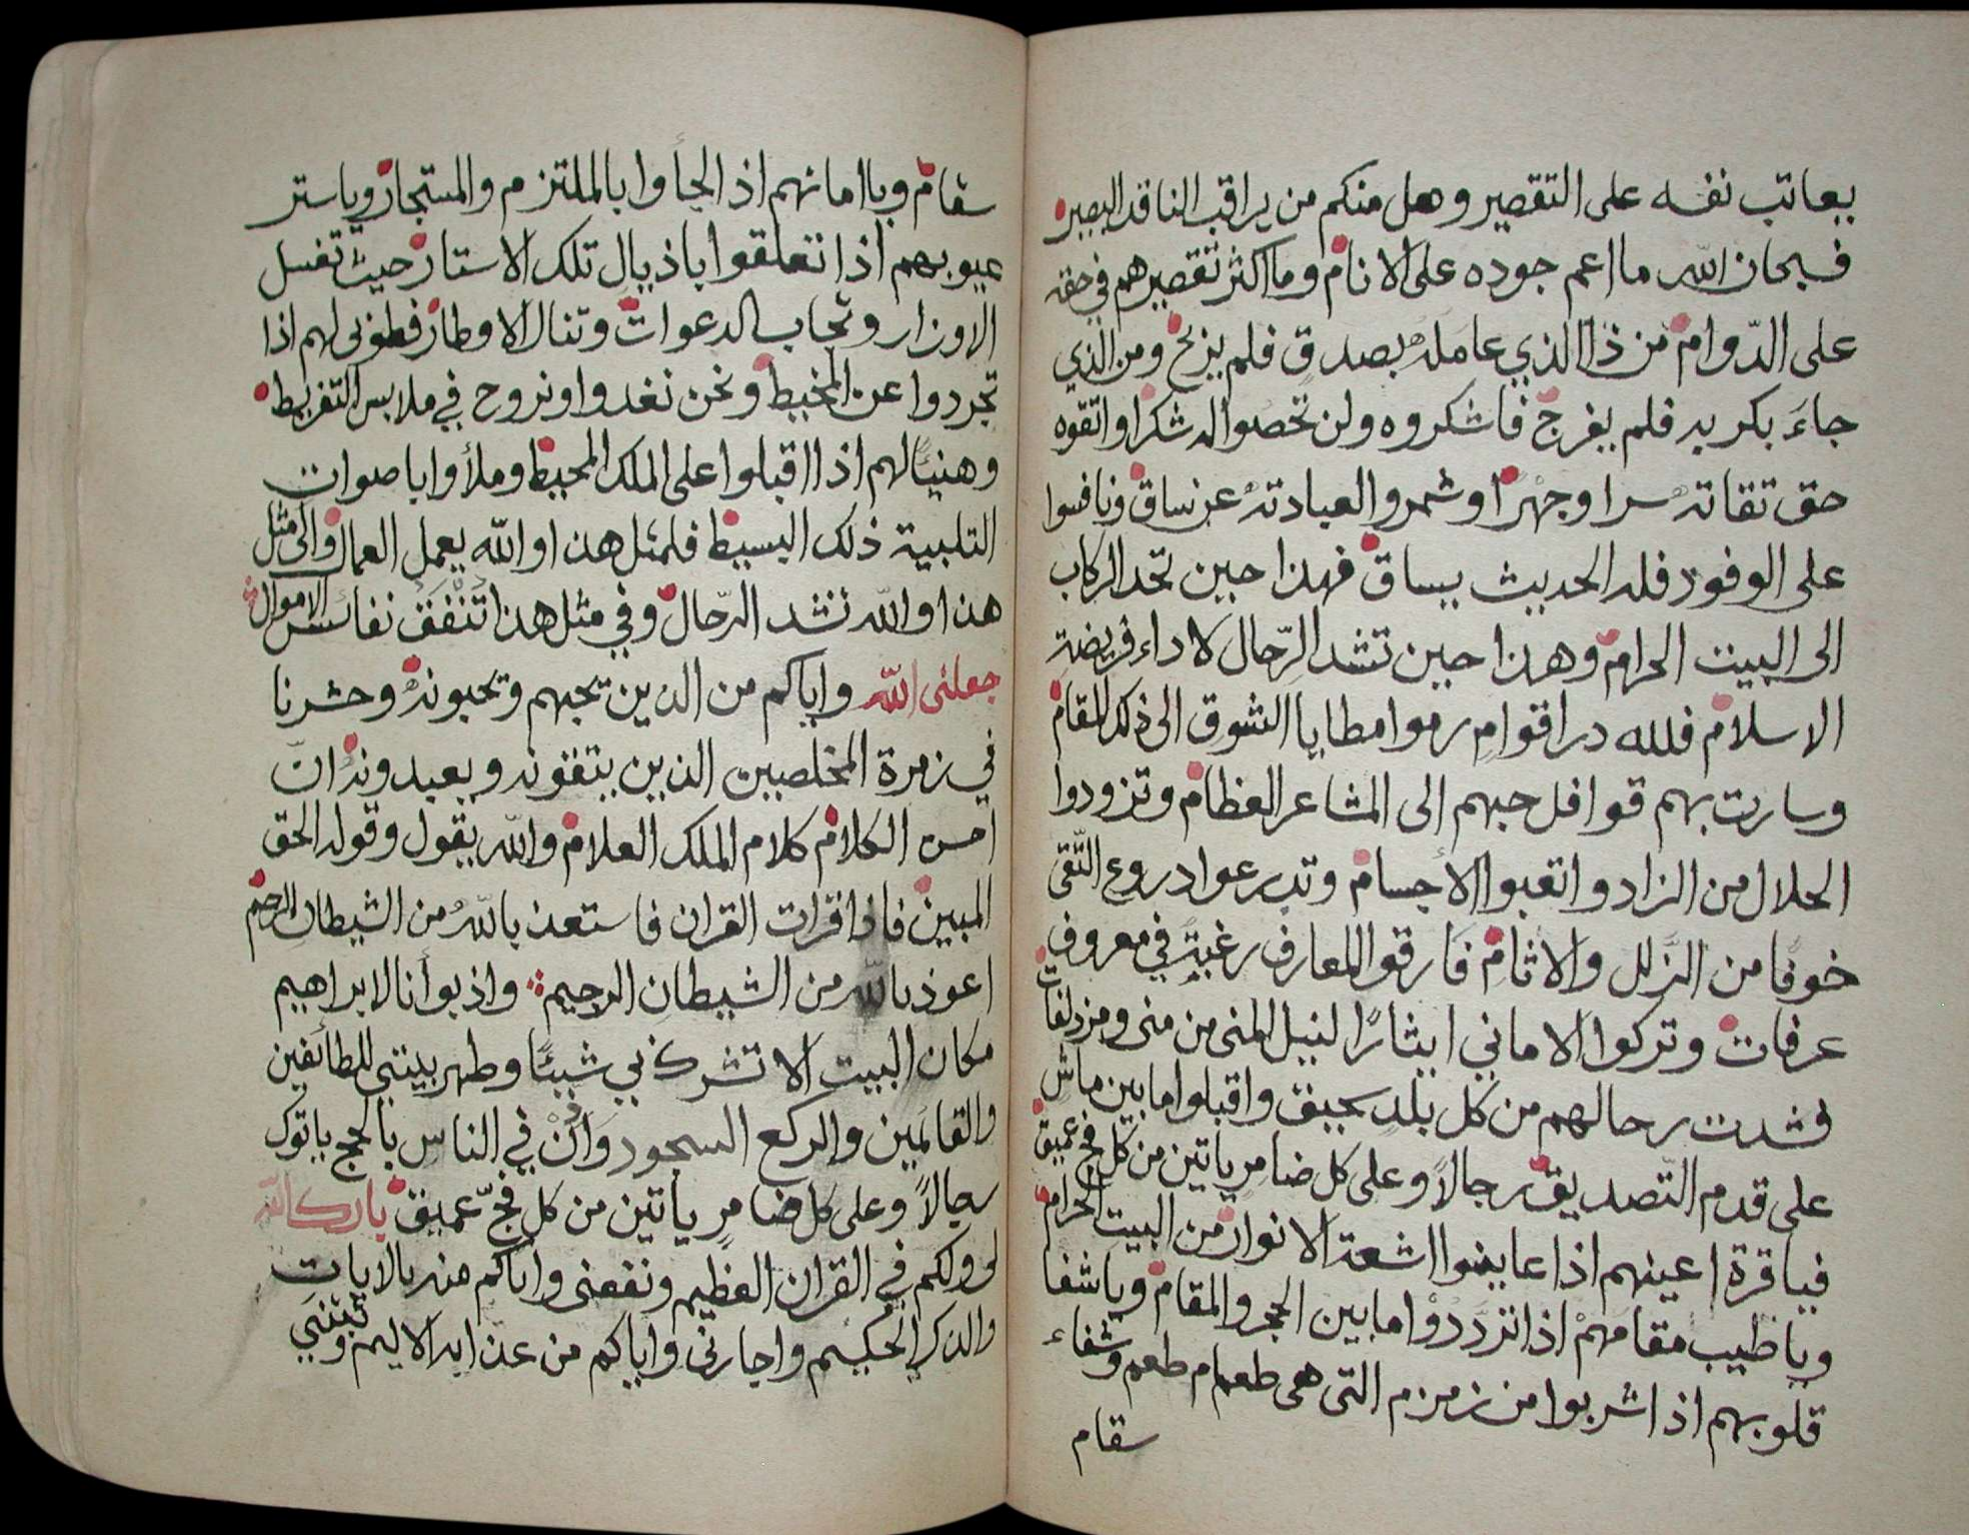 يعاتب نفسه على التقصير وهل منكم من يراقب الناقد البصير
فسبحان الله ما اعم جوده على الانام وما اكثر تقصيرهم في حقه
على الدّوام من ذا الذي عامله بصدق فلم يربح ومن الذي
جاءَ بكربه فلم يفرج فاشكروه ولن تحصوا له شكرا واتقوه
حق تقاته سرا وجهرًا وشمروا لعبادته عن ساق ونافسوا
على الوفود فله الحديث يساق فهذا حين تحد الركاب
الى البيت الحرام وهذا حين تشد الرّحال لاداء فريضة
الاسلام فلله در اقوامٍ رموا مطايا الشوق الى ذلك المقام
وسارت بهم قوافل حبهم الى المشاعر العظام وتزودوا
الحلال من الزاد واتعبوا الأجسام وتدرعوا دروع التّقى
خوفًا من الزّلل والاثام فارقوا المعارف رغبةً في معروف
عرفات وتركوا الاماني ايثارًا لنيل المنى من منى ومزدلفات
فشدت رحالهم من كل بلد سحيق واقبلوا ما بين ماش
على قدم التّصديق رجالاً وعلى كل ضامرٍ ياتين من كل فج عميق
فيا قرة اعينهم اذا عاينوا اشعة الانوار من البيت الحرام
ويا طيب مقامهمْ اذا تردّدوْا ما بين الحجر والمقام ويا شفا
قلوبهم اذا شربوا من زمزم التى هى طعام طعم وشفاء
سقام
سقام ويا امانهم اذ الجأوا بالملتزم والمستجار ويا ستر
عيوبهم اذا تعلقوا باذيال تلك الاستار حيث تغسل
الاوزار وتجاب الدعوات وتنال الاوطار فطوبى لهم اذا
تجردوا عن المخيط ونحن نغدوا ونروح في ملابس التفريط
وهنيًا لهم اذا اقبلوا على الملك المحيط وملأوا باصوات
التلبية ذلك البسيط فلمثل هذا والله يعمل العمال والى مثل
هذا والله تشد الرّحال وفي مثل هذا تُنْفَقُ نفائس الاموال
جعلنى الله واياكم من الذين يحبهم ويحبونه وحشرنا
في زمرة المخلصين الذين يتقونه ويعبدونه انّ
احسن الكلام كلام الملك العلام والله يقول وقوله الحق
المبين فاذا قرات القران فاستعذ بالله من الشيطان الرجيم
اعوذ بالله من الشيطان الرجيم واذ بوأنا لابراهيم
مكان البيت الا تشرك بي شيئًا وطهر بيتى للطائفين
والقائمين والركع السجود واذن في الناس بالحج ياتوك
رجالاً وعلى كل ضامرٍ ياتين من كل فجّ عميق بارك الله
لى ولكم في القران العظيم ونفعنى واياكم منه بالايات
والذكر الحكيم واجارنى واياكم من عذابه الاليم وثبتني